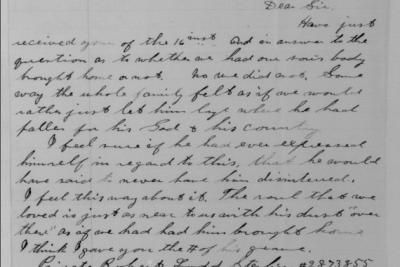 Dear Sir.
Have just
received your of the 16 inst and in answer to the
question as to whether we had our son's body
brought home or not. No we did not. Some
way the whole family felt as if we would
rather just let him lye where he had
fallen for his God & his country
I feel sure if he had ever expressed
himself in regard to this, that he would
have said to never have him disinterred.
I feel this way about it. The soul that we
loved is just as near to us with his dust "over
there" as if we had had him brought home
I think I gave you the # of his grave.
Private Robert